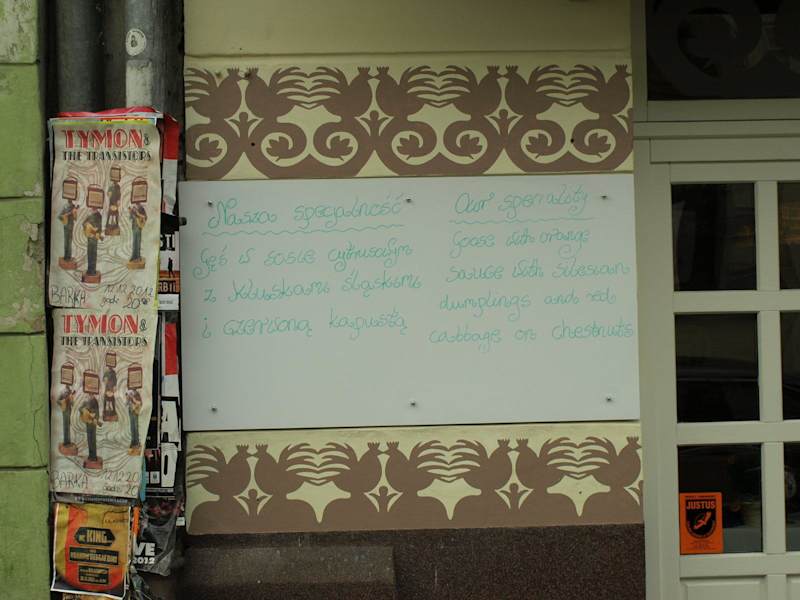 TYMON &
THE TRANSISTORS
BARKA 12.12.2012
godz. 20
TYMON &
THE TRANSISTORS
BARKA 12.12.20
godz. 20
KING
LIVE
2012
Nasza specjalność
Gęś w sosie cytrusowym
z kluskami śląskimi
i czerwoną kapustą
Our speciality
Goose with orange
sauce with silesian
dumplings and red
cabbage on chestnuts
JUSTUS